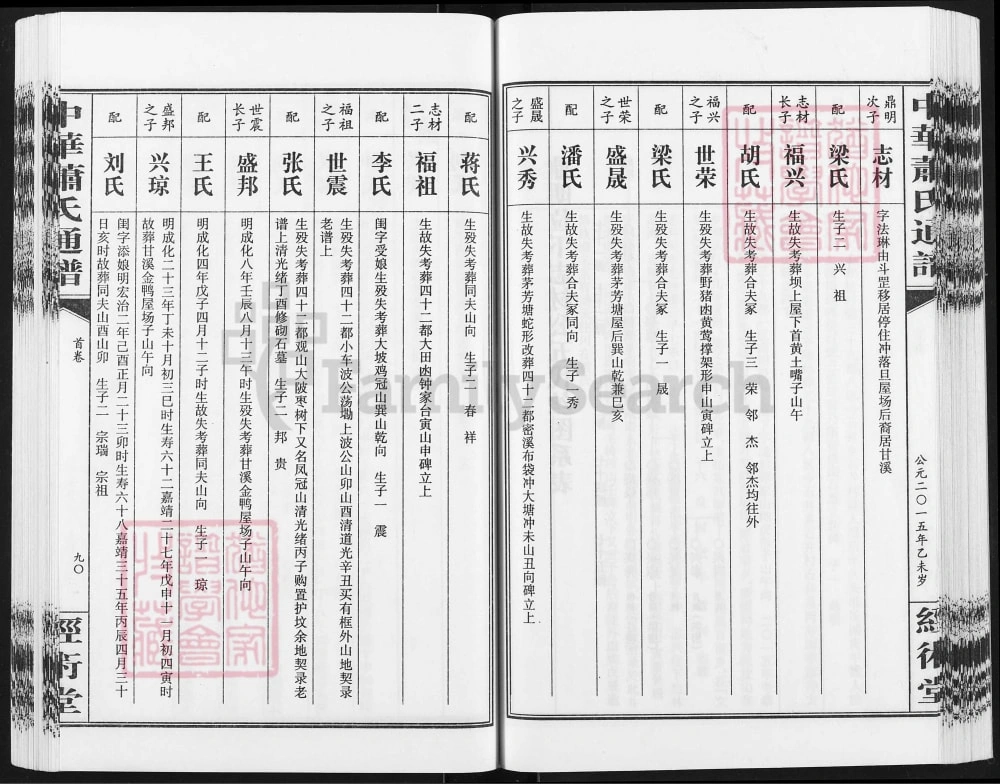 中華蕭氏通譜
公元二〇一五年乙未岁
經術堂
鼎明次子
志材
字法琳由斗罡移居停住冲落旦屋场后裔居甘溪
配
梁氏
生子二 兴 祖
志材长子
福兴
生故失考葬坝上屋下首黄土嘴子山午
配
胡氏
生故失考葬合夫冢 生子三 荣 邻 杰 邻杰均往外
福兴之子
世荣
生殁失考葬野猪凼黄莺撑架形申山寅碑立上
配
梁氏
生殁失考葬合夫冢 生子一 晟
世荣之子
盛晟
生殁失考葬茅芳塘屋后巽山乾兼巳亥
配
潘氏
生故失考葬合夫冢同向 生子一 秀
盛晟之子
兴秀
生故失考葬茅芳塘蛇形改葬四十二都密溪布袋冲大塘冲未山丑向碑立上
配
蒋氏
生殁失考葬同夫山向 生子二 春 祥
志材二子
福祖
生故失考葬四十二都大田凼钟家台寅山申碑立上
配
李氏
闺字受娘生殁失考葬大坡鸡冠山巽山乾向 生子一 震
福祖之子
世震
生殁失考葬四十二都小车波公荡塝上波公山卯山酉清道光辛丑买有框外山地契录
老谱上
配
张氏
生殁失考葬四十二都观山大陂枣树下又名凤冠山清光绪丙子购置护坟余地契录老
谱上清光绪丁酉修砌石墓 生子二 邦 贵
世震长子
盛邦
明成化八年壬辰八月十三午时生殁失考葬甘溪金鸭屋场子山午向
配
王氏
明成化四年戊子四月十二子时生故失考葬同夫山向 生子一 琼
盛邦之子
兴琼
明成化二十三年丁未十月初三巳时生寿六十二嘉靖二十七年戊申十一月初四寅时
故葬甘溪金鸭屋场子山午向
配
刘氏
闺字添娘明宏治二年己酉正月二十三卯时生寿六十八嘉靖三十五年丙辰四月三十
日亥时故葬同夫山酉山卯 生子二 宗瑞 宗祖
中華蕭氏通譜
首卷
九〇
經術堂
FamilySearch